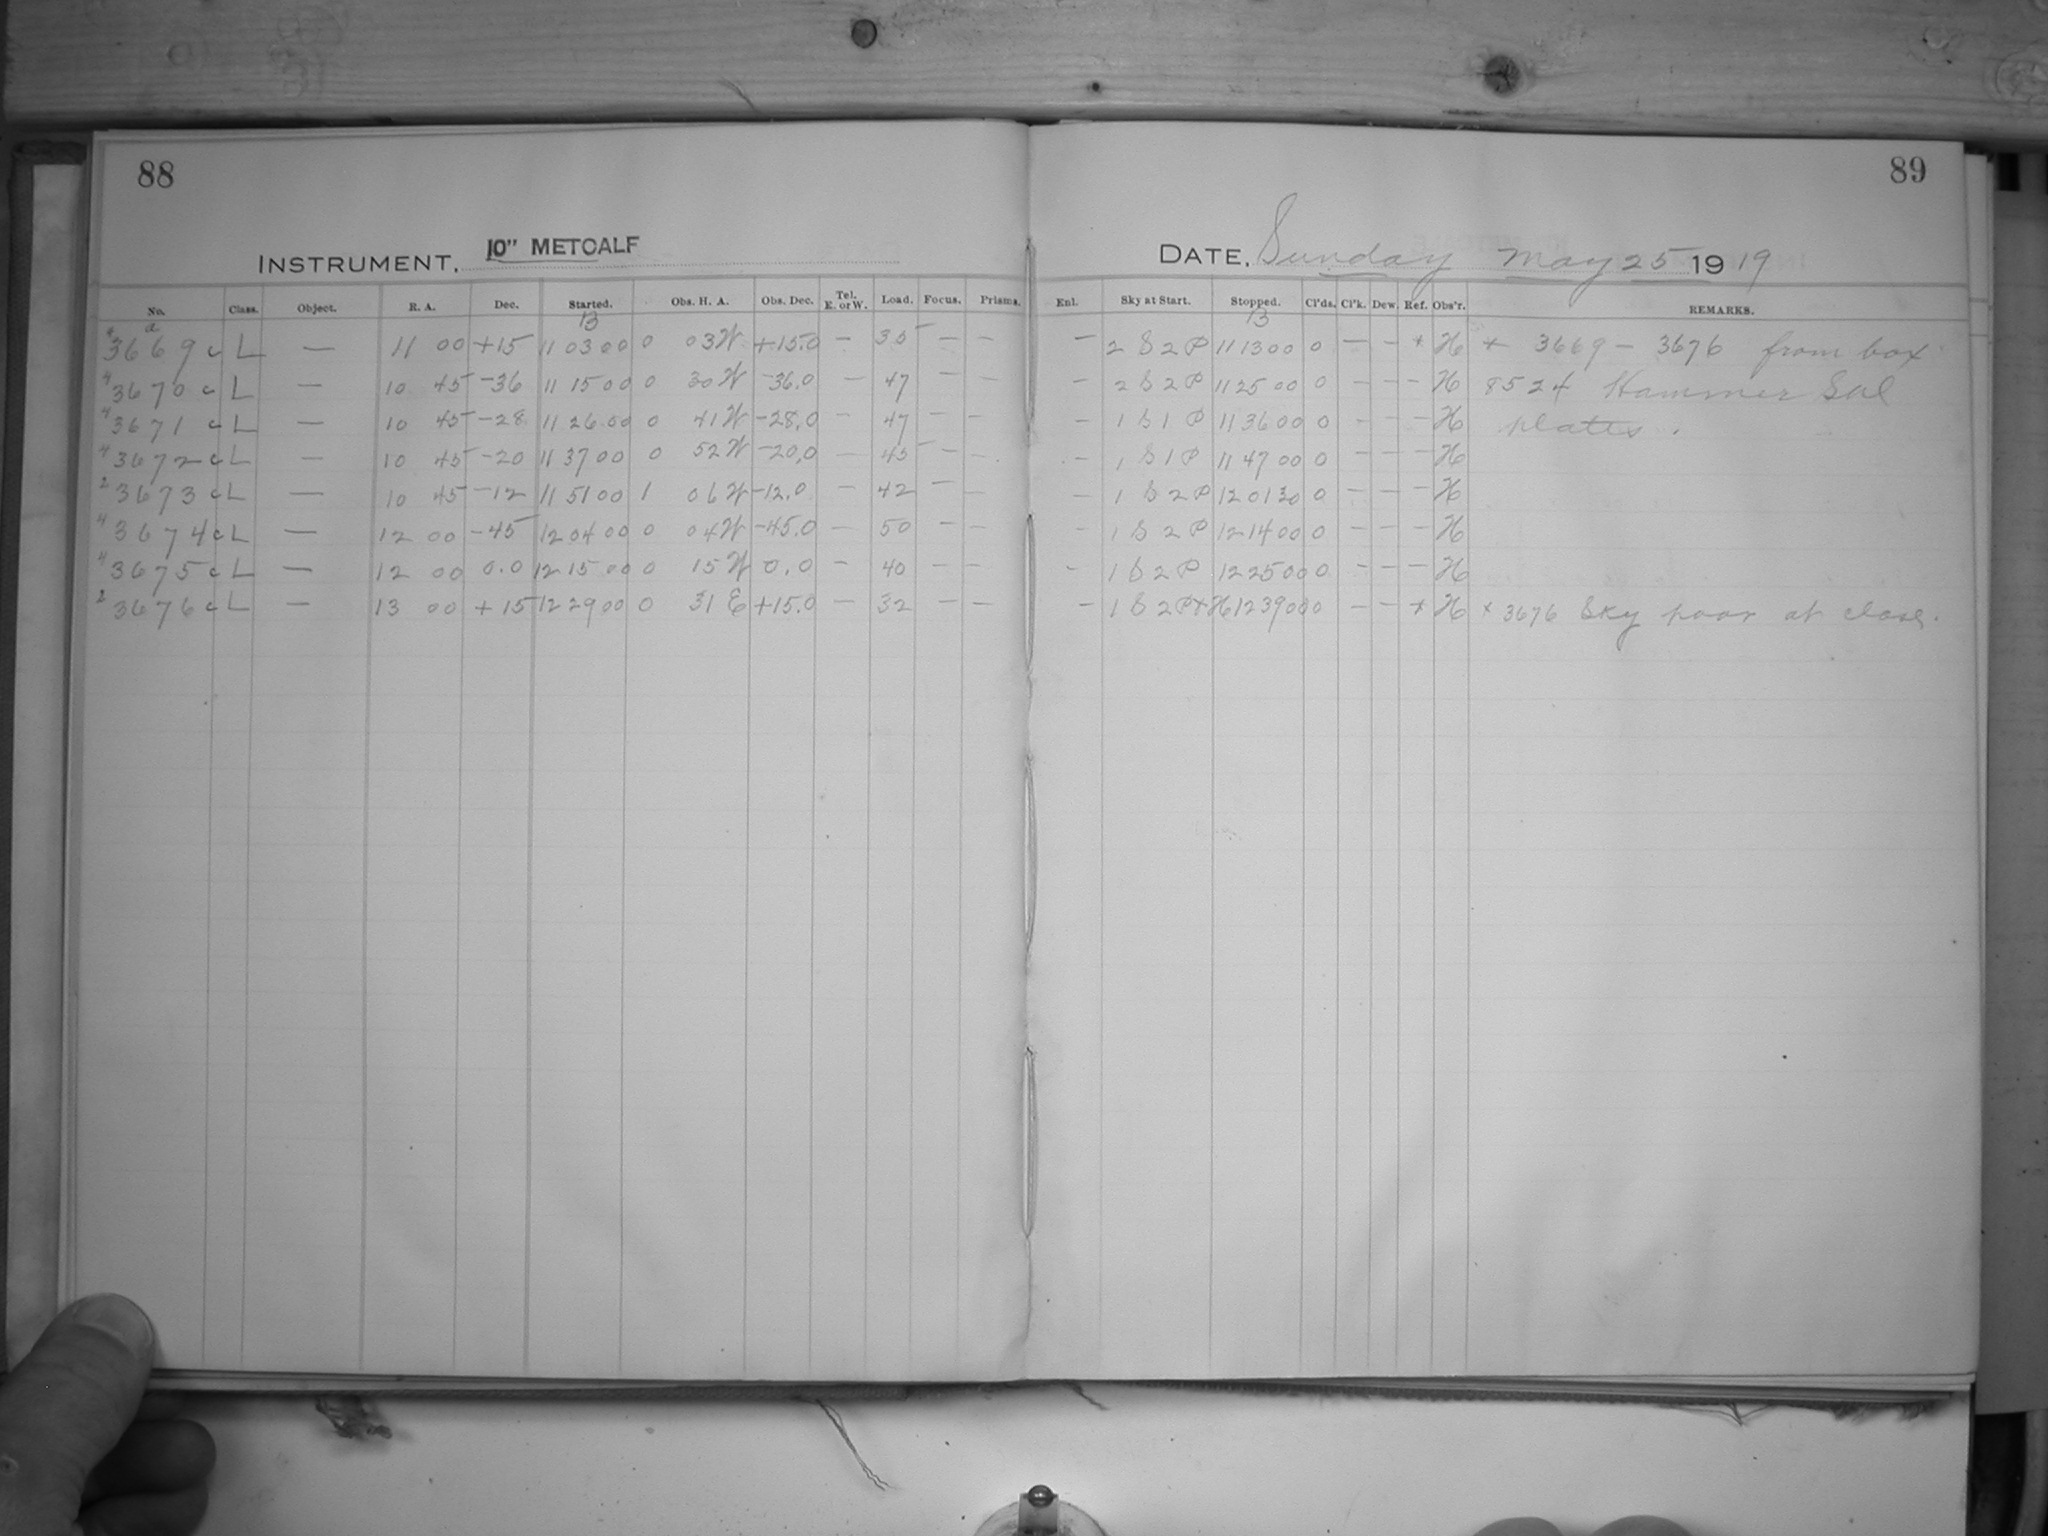 88
89
INSTRUMENT, 10" METCALF
DATE, Sunday May 25 1919
No. Class. Object. R. A. Dec. Started. Obs. H. A. Obs. Dec. Tel. E. or W. Load. Focus. Prisms. Enl. Sky at Start. Stopped. Cl'ds. Cl'k. Dew. Ref. Obs'r. REMARKS.
a B B
4 3669 c L — 11 00 +15 11 03 00 0 03 W +15.0 — 35 — — — 2 S 2 P 11 13 00 0 — — * H * 3669 - 3676 from box
4 3670 c L — 10 45 -36 11 15 00 0 30 W -36.0 — 47 — — — 2 S 2 P 11 25 00 0 — — — H 8524 Hammer Sal
4 3671 c L — 10 45 -28 11 26 00 0 41 W -28.0 — 47 — — — 1 S 1 P 11 36 00 0 — — — H plates.
4 3672 c L — 10 45 -20 11 37 00 0 52 W -20.0 — 45 — — — 1 S 1 P 11 47 00 0 — — — H
2 3673 c L — 10 45 -12 11 51 00 1 06 W -12.0 — 42 — — — 1 S 2 P 12 01 30 0 — — — H
4 3674 c L — 12 00 -45 12 04 00 0 04 W -45.0 — 50 — — — 1 S 2 P 12 14 00 0 — — — H
4 3675 c L — 12 00 0.0 12 15 00 0 15 W 0.0 — 40 — — — 1 S 2 P 12 25 00 0 — — — H
2 3676 c L — 13 00 +15 12 29 00 0 31 E +15.0 — 32 — — — 1 S 2 P * H 12 39 00 0 — — * H * 3676 Sky poor at close.